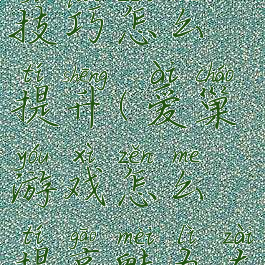 技巧怎么
tí shēng ài cháo
提升(爱巢
yóu xì zěn me
游戏怎么
tí gāo mèi lì zài
提高魅力在